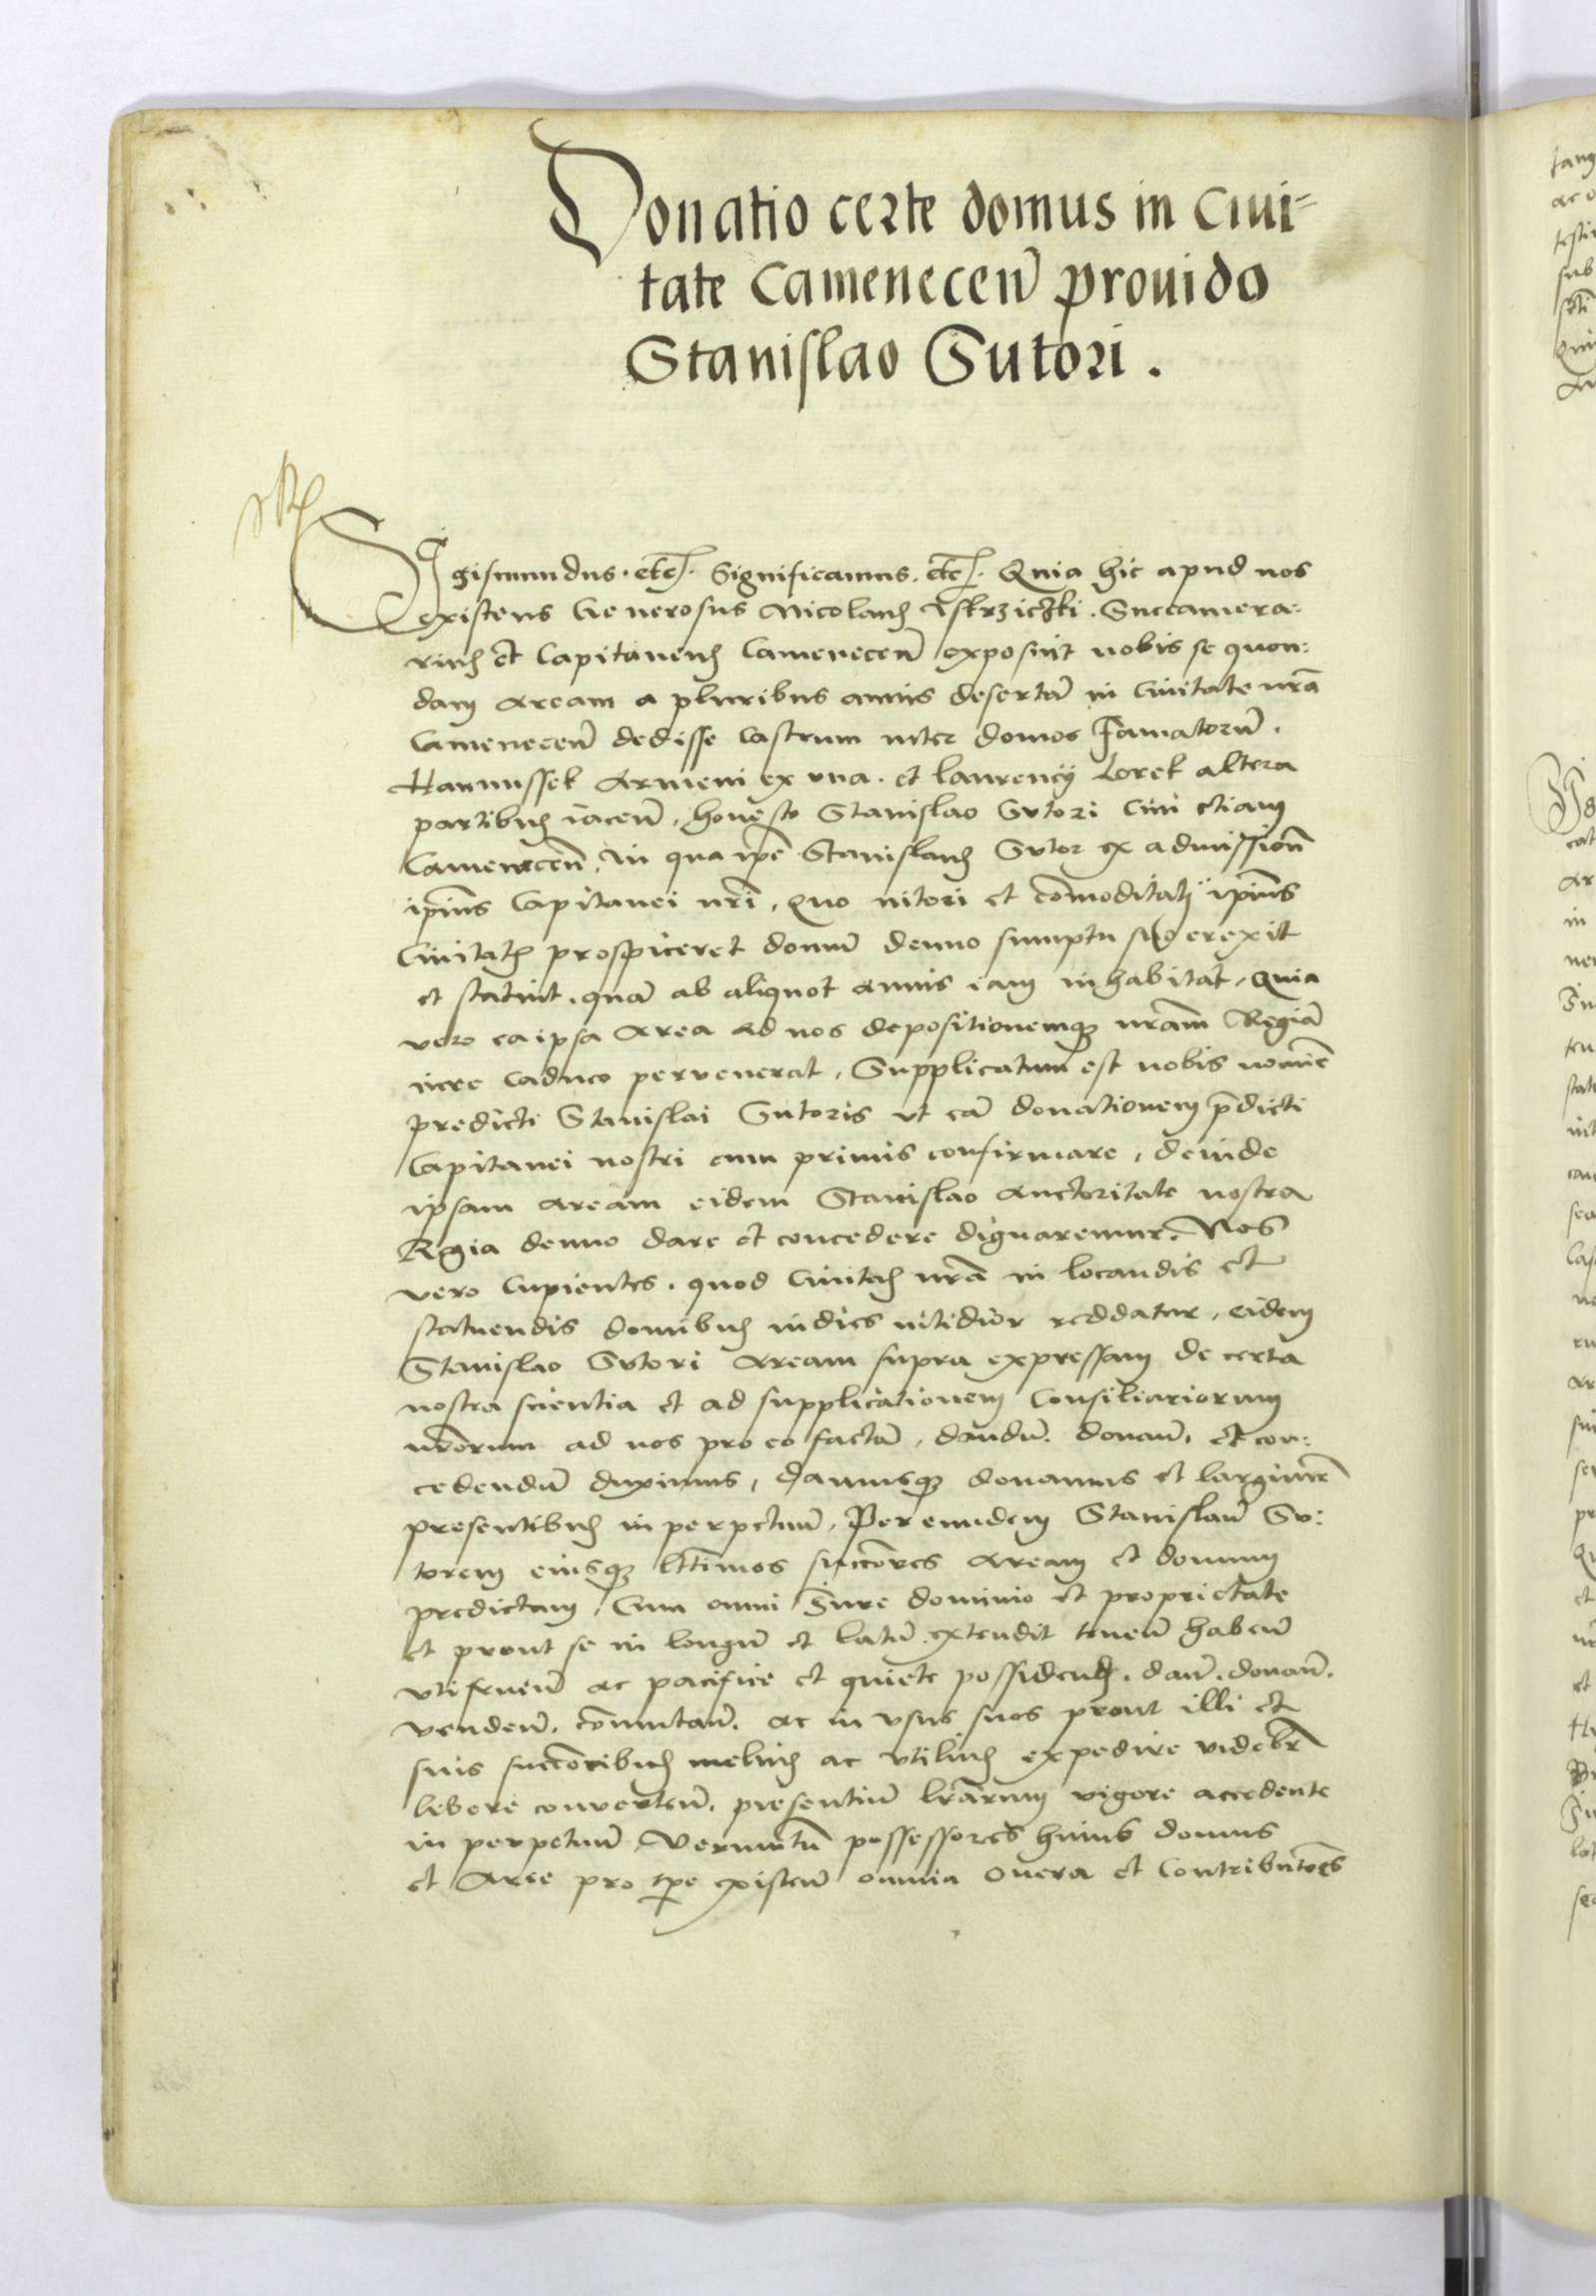 Donatio certe domus in Ciui-
tate Camenecen̄ prouido
Stanislao Sutori.
Sigismundus. etc. Significamus. etc. Quia hic apud nos
existens Generosus Nicolaus Iskrziczki. Succamera:
rius et Capitaneus Camenecen̄ exposuit nobis se quon:
dam aream a pluribus annis desertā in Ciuitate nrā
Camenecen̄ dedisse castrum inter domos Famatorū.
Hannussek Armeni ex vna. et laurencij Loret altera
partibus iacen̄, honesto Stanislao Sutori Ciui etiam
Camenecen̄, In qua ipē Stanislaus Sutor ex admissionē
ipīus Capitanei nrī, quo nitori et cōmoditati ipīus
Ciuitatis prospiceret domū denuo sumptu suo erexit
et statuit, quā ab aliquot annis iam inhabitat, Quia
vero ea ipsa area ad nos depositionemque nrām Regiā
iure caduco peruenerat, Supplicatum est nobis nomīe
predicti Stanislai Sutoris vt eā donationem p̄dicti
Capitanei nostri cum primis confirmare, deinde
ipsam aream eidem Stanislao auctoritate nostra
Regia denuo dare et concedere dignaremur, Nos
vero cupientes. quod Ciuitas nrā in locandis et
statuendis domibus indies nitidior reddatur, eidem
Stanislao Sutori Aream supra expressam de certa
nostra scientia et ad supplicationem Consiliariorum
nrōrum ad nos pro eo factā, dandū. donan̄. et con:
cedendū duximus, damusque donamus et largimur
presentibus in perpetuū, Per eundem Stanislaū Su:
torem eiusque lttīmos succōres aream et domum
predictam, Cum omni Iure dominio et proprietate
et prout se in longū et latū extendit tenen̄ haben̄
vtifruen̄ ac pacifice et quiete possidend. dan̄. donan̄.
venden̄. cōmutan̄. ac in vsus suos prout illi et
suis succōribus melius ac vtilius expedire videbr̄
libere conuerten̄. presentiū lrārum vigore accedente
in perpetuū, Verumtn̄ possessores huius domus
et Aree pro tpe existen̄ omnia onera et Contributōes